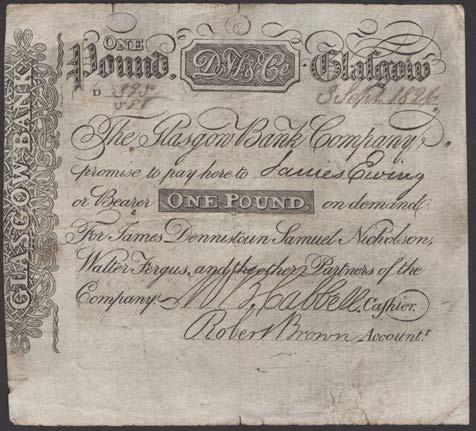 GLASGOW BANK
ONE
Pound. D.N.& Co. Glasgow
D 395/581 3 Sept. 1826
The Glasgow Bank Company,
promise to pay here to James Ewing
or Bearer ONE POUND, on demand
For James Dennistoun Samuel Nicholson,
Walter Fergus, and the other Partners of the
Company. Cashier.
Robert Brown Account.t